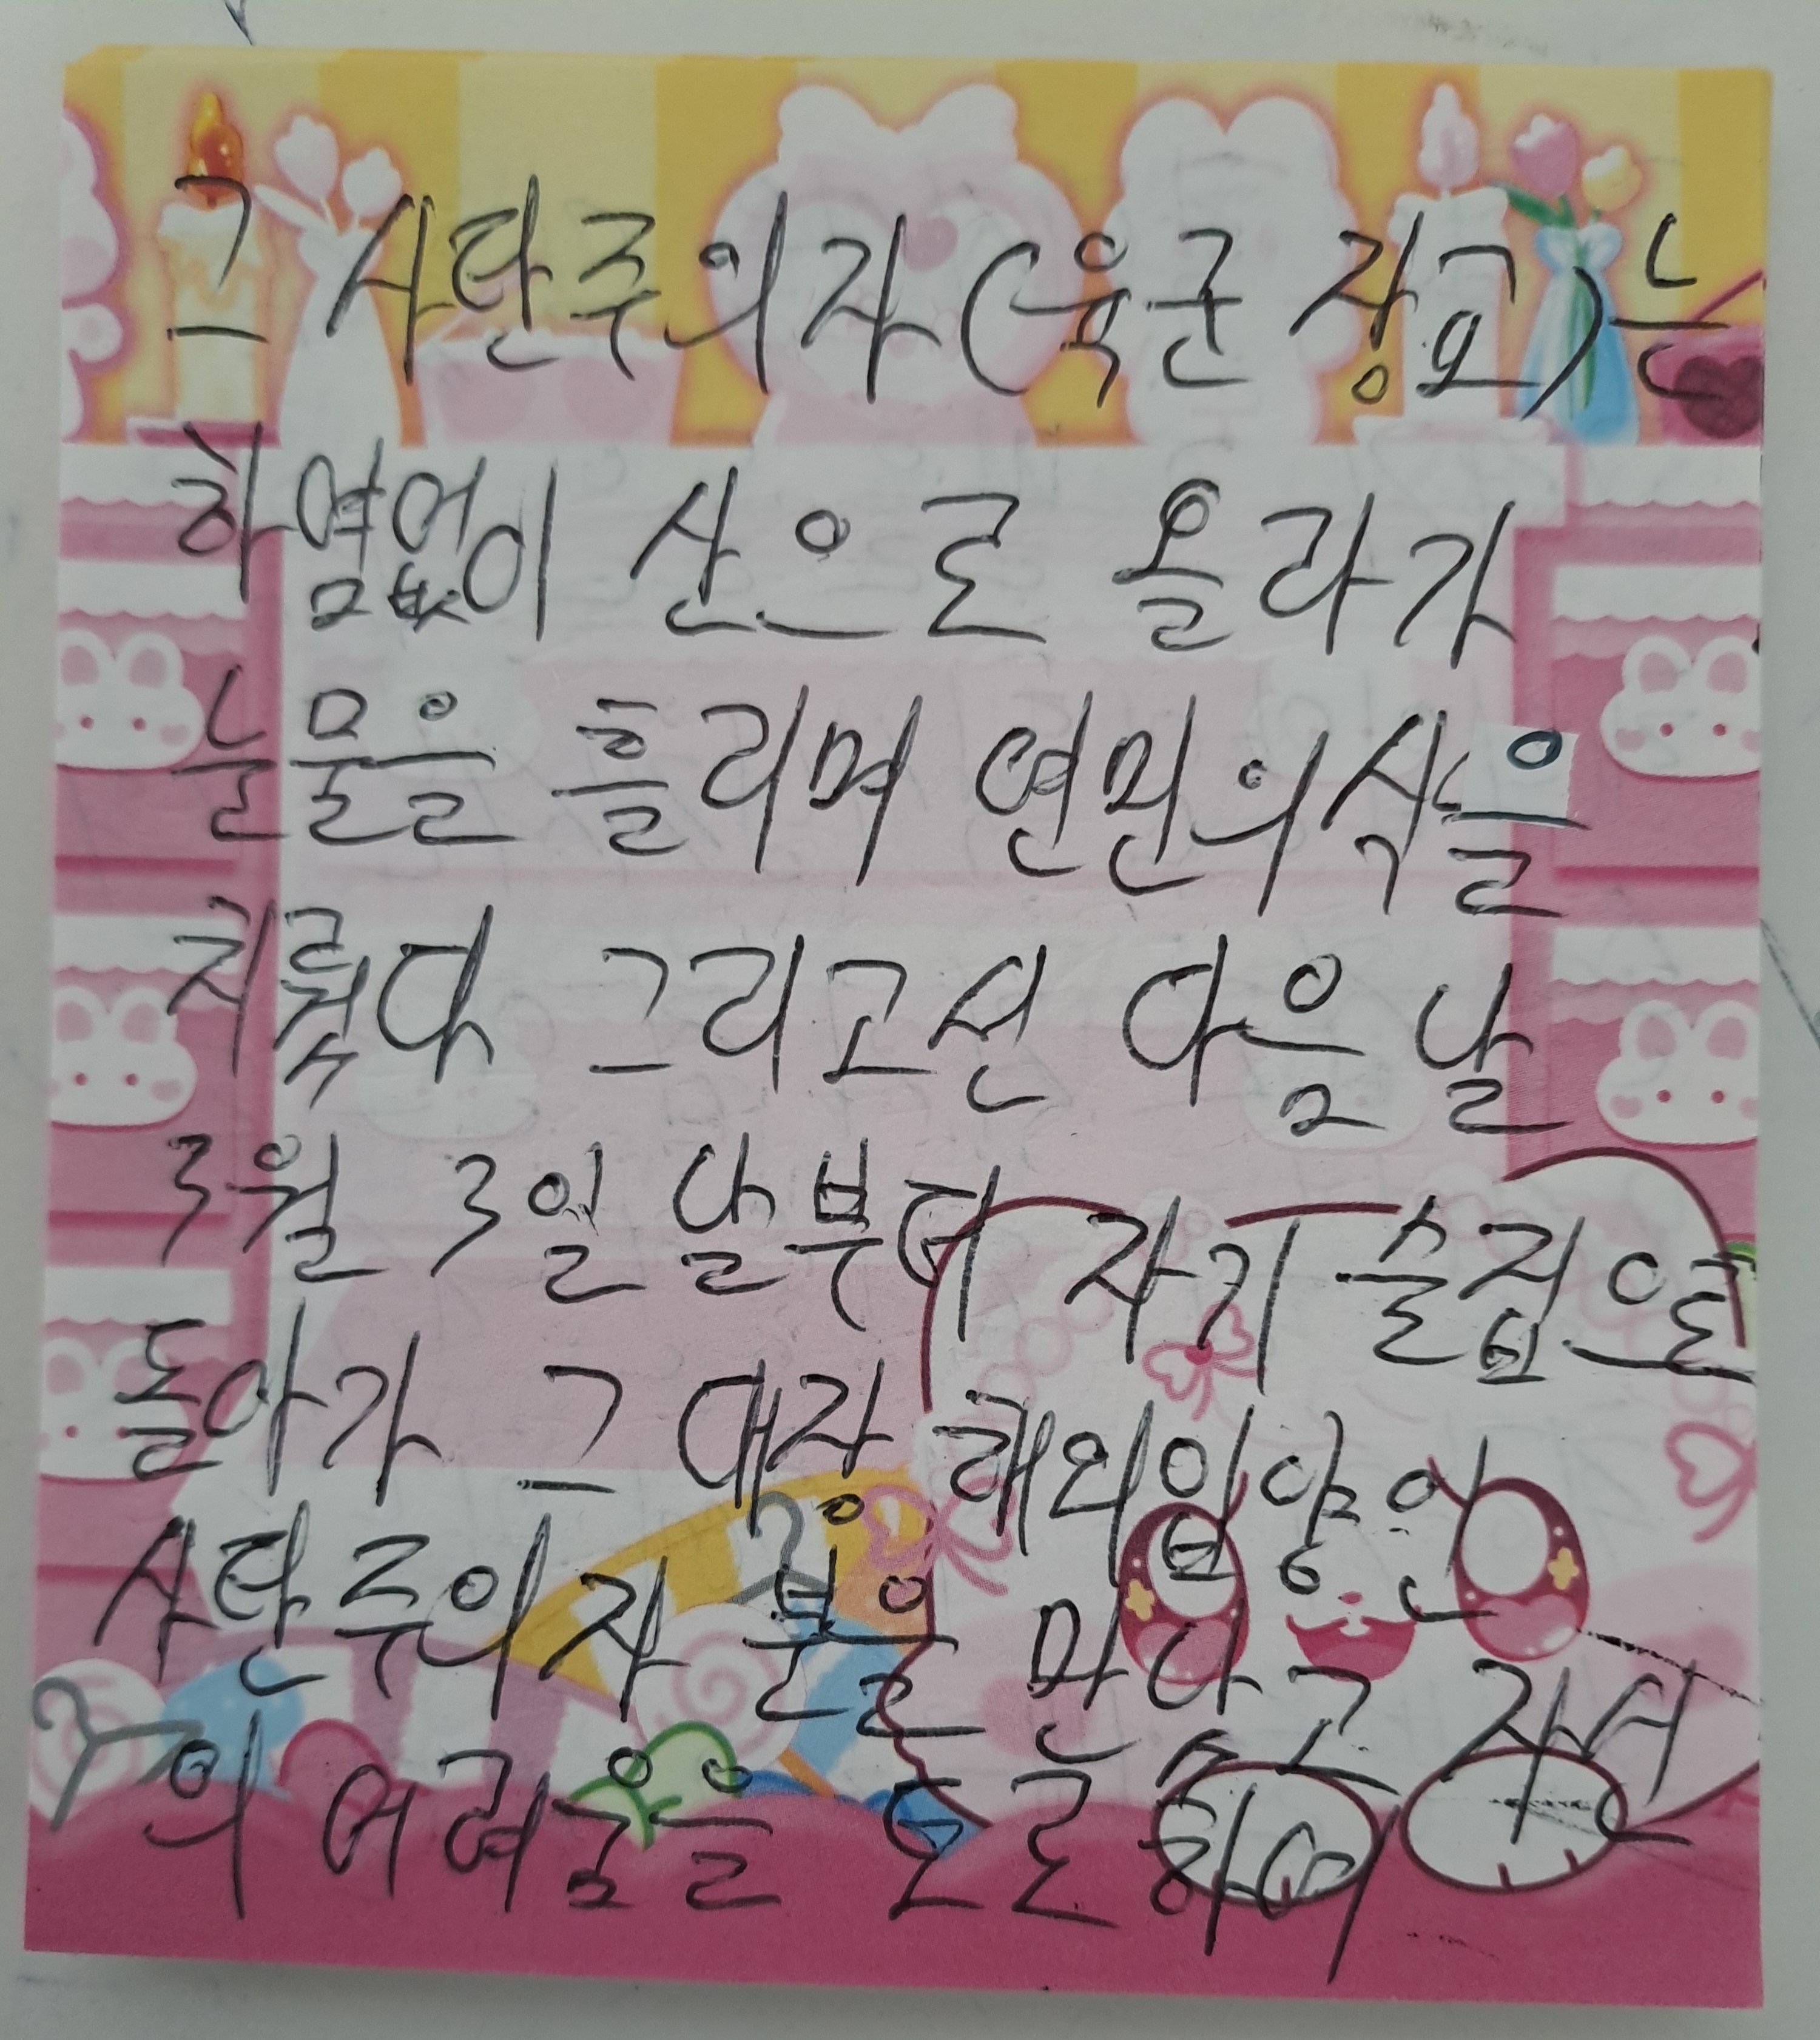 그 사탄주의자(육군 장교)는
하염없이 산으로 올라가
눈물을 흘리며 연민의식을
치뤘다 그리고선 다음 날
3월 3일 날부터 자기 술집으로
돌아가 그 대장 해외입양인
사탄주의자 분을 만나고 자신
의 어려움을 토로하여